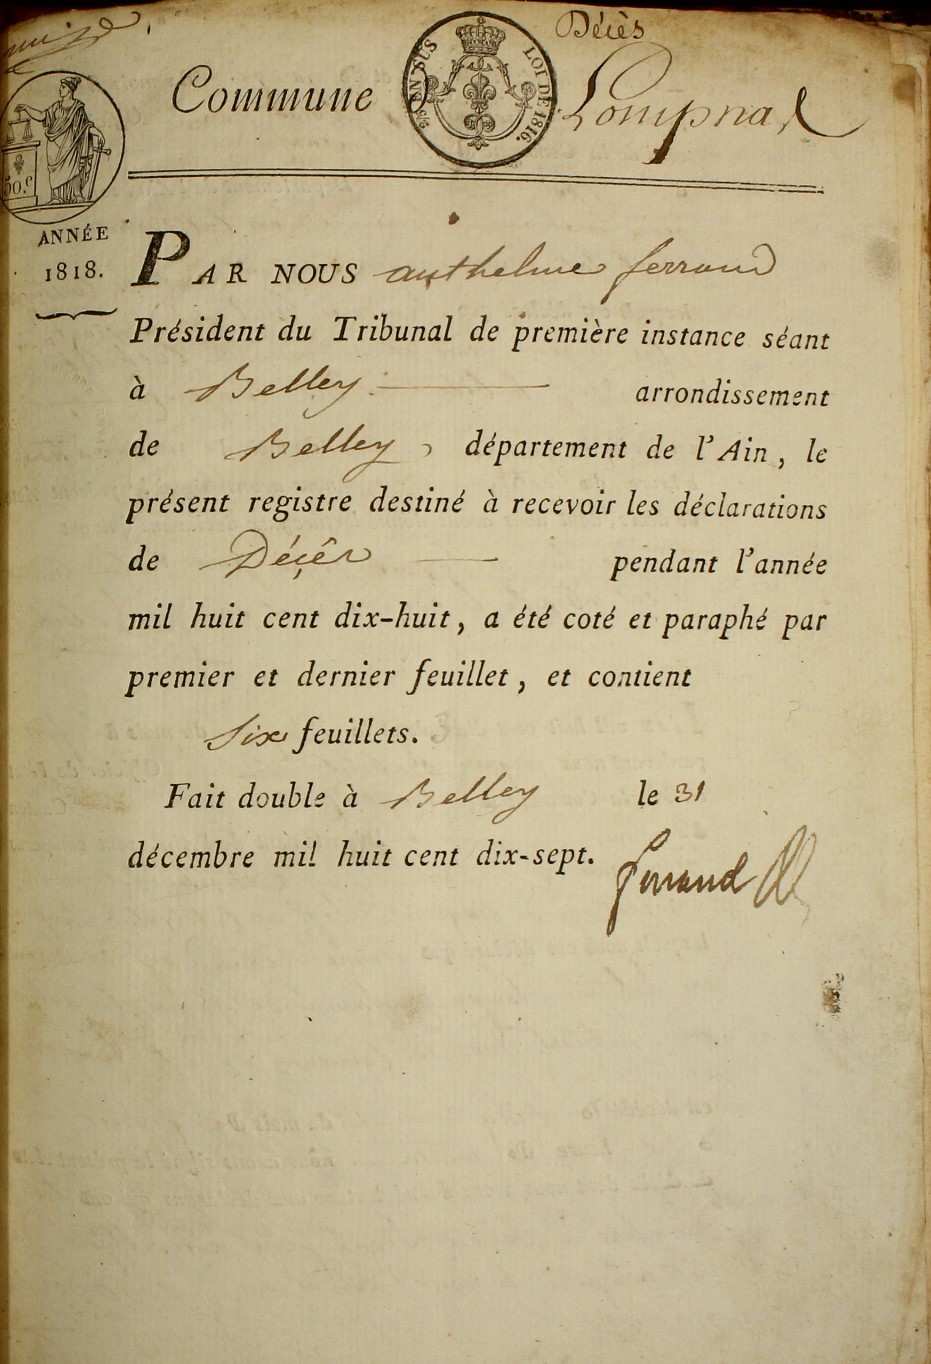 Décès
Commune Lompnas
EN SUS LOI DE 1816.
50.c
ANNÉE
1818.
PAR NOUS anthelme ferrand
Président du Tribunal de première instance séant
à Belley arrondissement
de Belley, département de l'Ain, le
présent registre destiné à recevoir les déclarations
de Décès pendant l'année
mil huit cent dix-huit, a été coté et paraphé par
premier et dernier feuillet, et contient
six feuillets.
Fait double à Belley le 31
décembre mil huit cent dix-sept.
ferrand